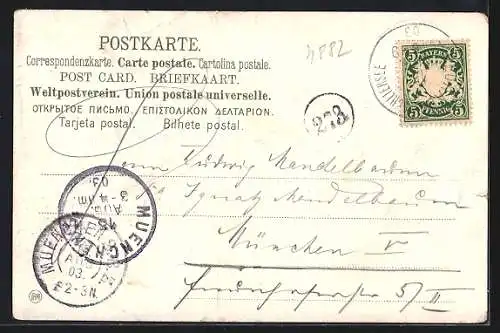 POSTKARTE.
Correspondenzkarte. Carte postale. Cartolina postale.
POST CARD. BRIEFKAART.
Weltpostverein. Union postale universelle.
ОТКРЫТОЕ ПИСЬМО. ΕΠΙΣΤΟΛΙΚΟΝ ΔΕΛΤΑΡΙΟΝ.
Tarjeta postal. Bilhete postal.
BAYERN
5 5
PFENNIG
5 5
03
278
Ludwig Mandelbaum
Ignatz Mandelbaum
München V
5/II
MUENCHEN
15
AUG.
3-4 NM.
03
AUG
03
2-3N.